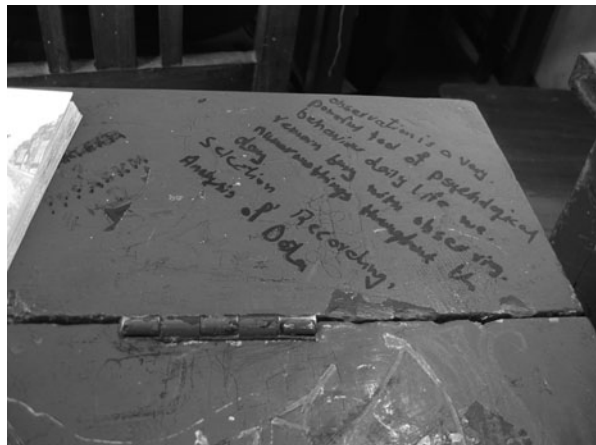 observation is a very
powerful tool of psychological
behavior daily life we
remain busy with observing
numerousthings thoughout th
day
Selection According,
Analysis of Data